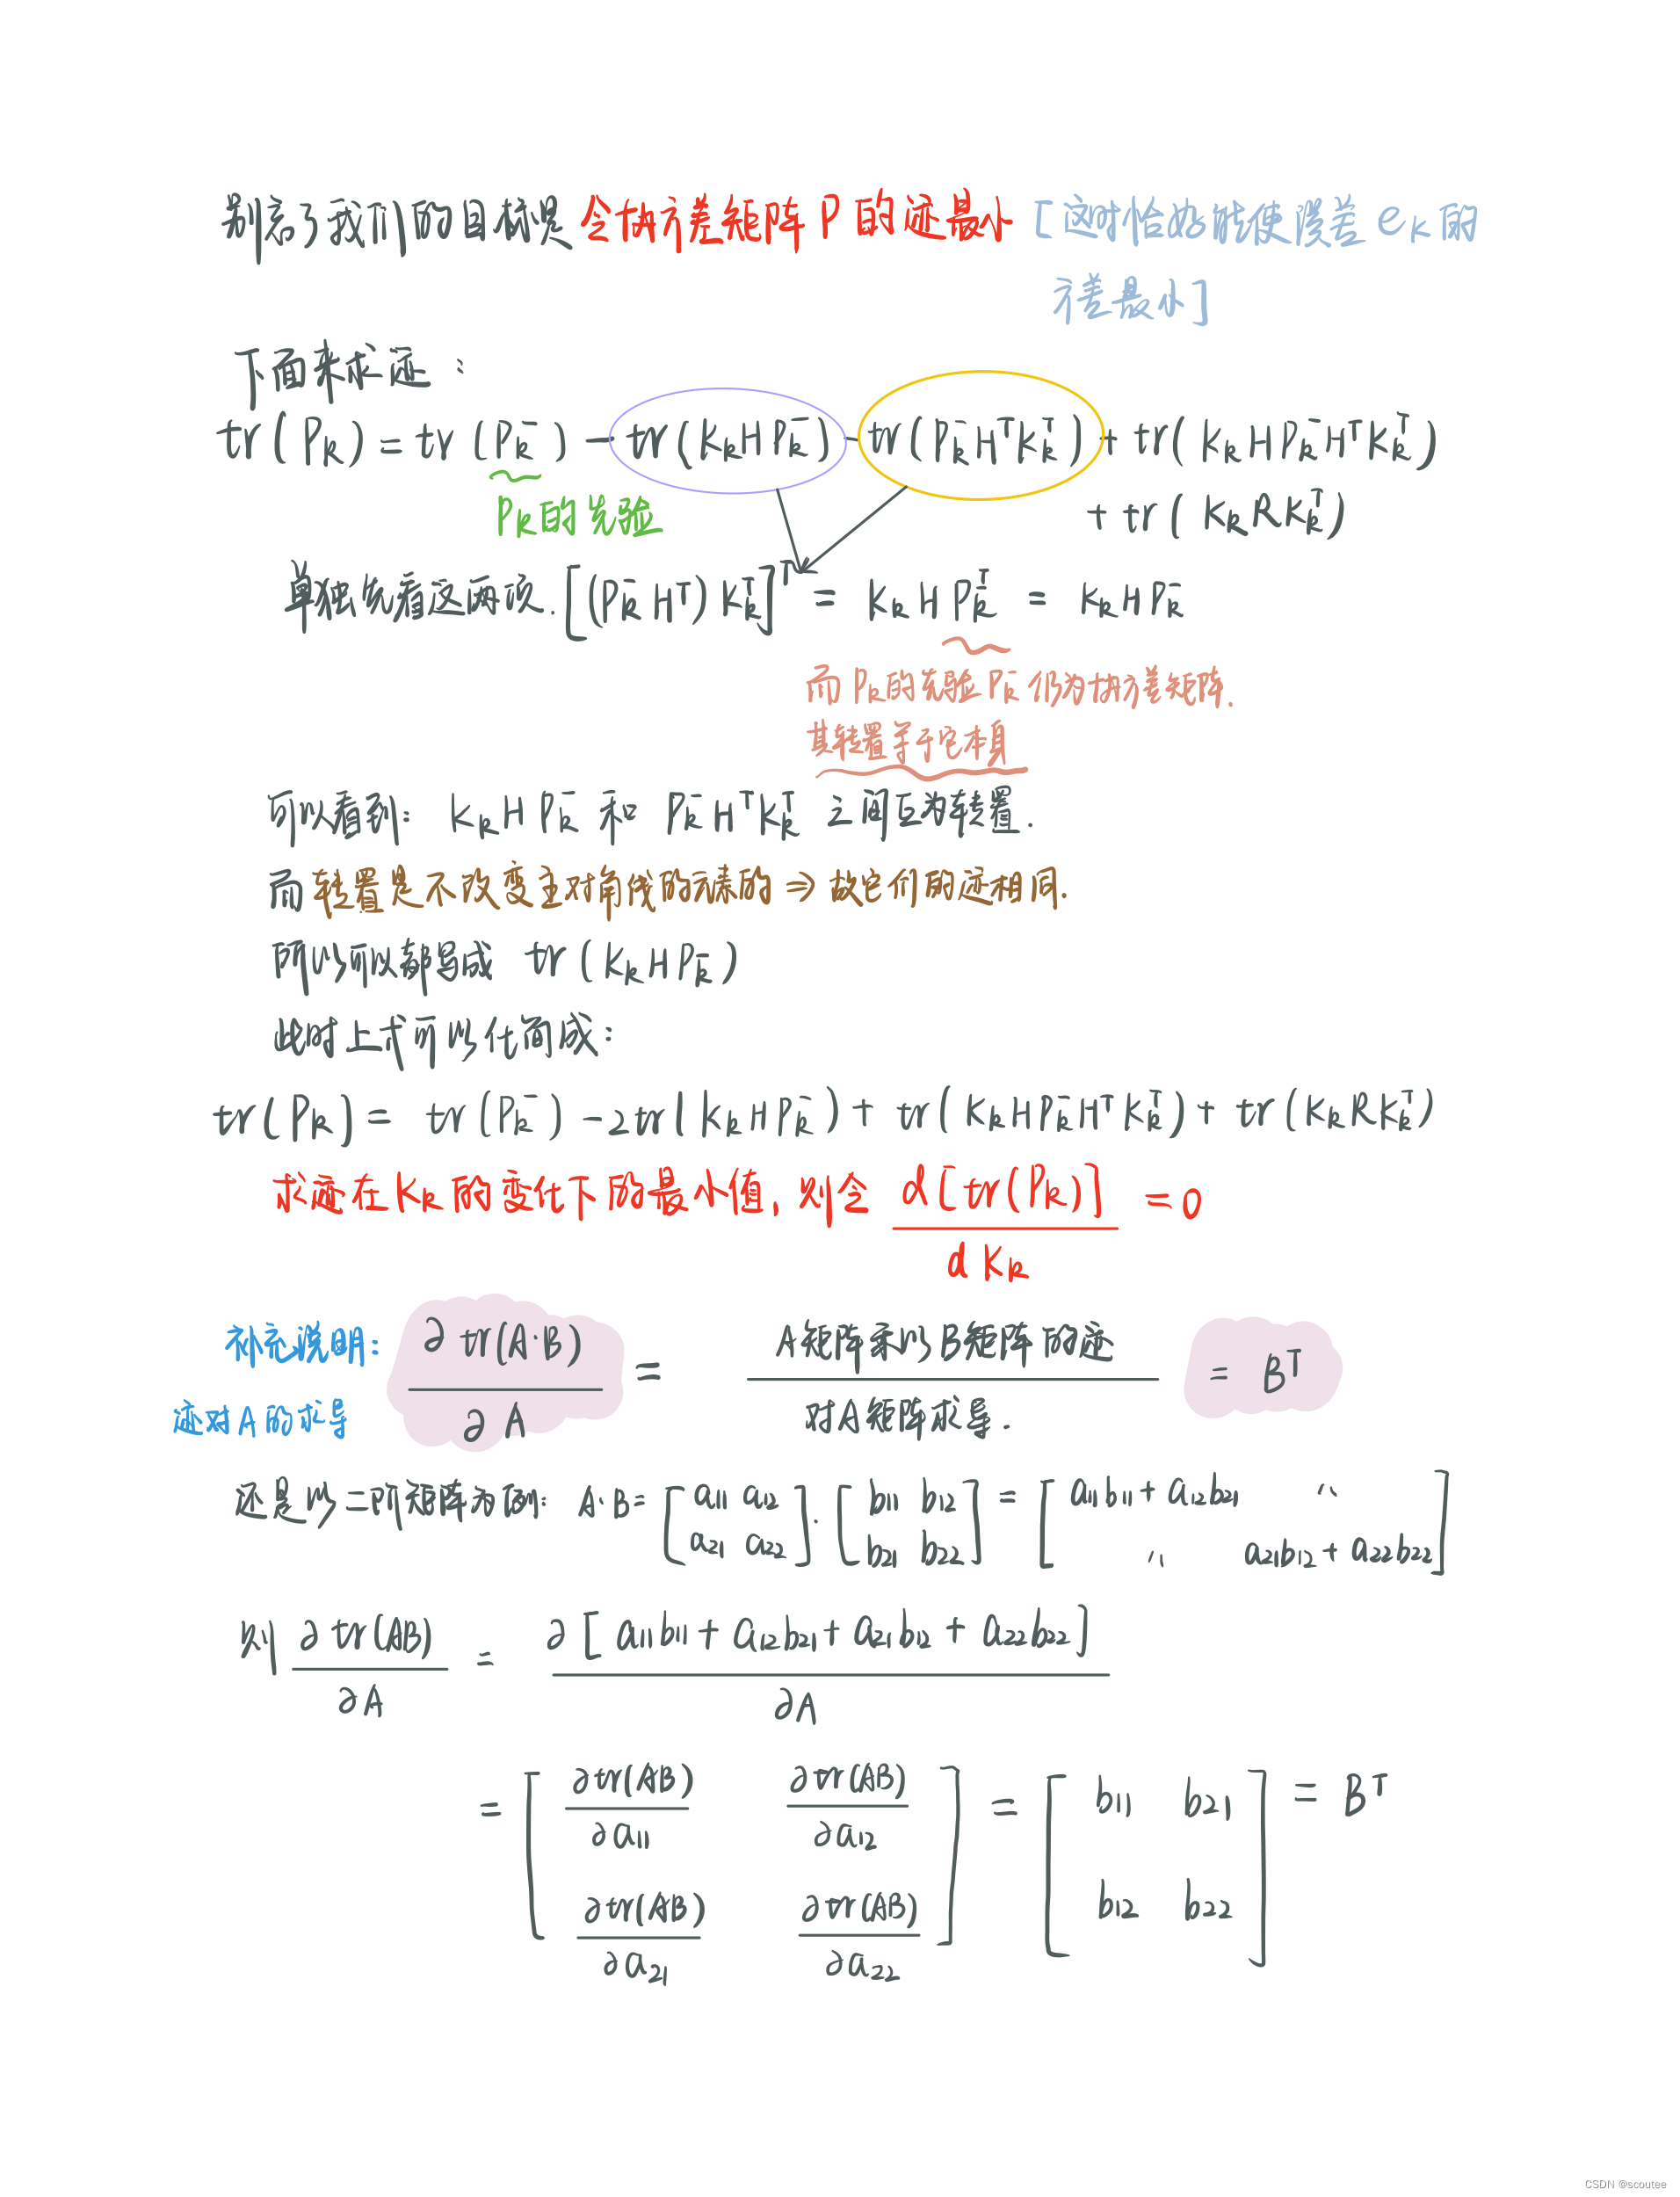 别忘了我们的目标是 令协方差矩阵 P 的迹最小 [这时恰好能使误差 e_k 的
方差最小]
下面来求迹：
tr(P_k) = tr(P_k^-) - tr(K_k H P_k^-) - tr(P_k^- H^T K_k^T) + tr(K_k H P_k^- H^T K_k^T)
P_k的先验
+ tr(K_k R K_k^T)
单独先看这两项. [(P_k^- H^T) K_k^T]^T = K_k H P_k^{-T} = K_k H P_k^-
而 P_k的先验 P_k^- 仍为协方差矩阵.
其转置等于它本身
可以看到： K_k H P_k^- 和 P_k^- H^T K_k^T 之间互为转置.
而 转置是不改变主对角线的元素的 ⇒ 故它们的迹相同.
所以可以都写成 tr(K_k H P_k^-)
此时上式可以化简成：
tr(P_k) = tr(P_k^-) - 2tr(K_k H P_k^-) + tr(K_k H P_k^- H^T K_k^T) + tr(K_k R K_k^T)
求迹在 K_k 的变化下的最小值, 则令 d[tr(P_k)] / d K_k = 0
补充说明： ∂ tr(A·B) / ∂ A = A矩阵乘以B矩阵的迹 / 对A矩阵求导. = B^T
迹对 A 的求导
还是以二阶矩阵为例： A·B = [a11 a12; a21 a22] · [b11 b12; b21 b22] = [a11b11 + a12b21 ‥; ‥ a21b12 + a22b22]
则 ∂ tr(AB) / ∂A = ∂ [a11b11 + a12b21 + a21b12 + a22b22] / ∂A
= [∂tr(AB)/∂a11 ∂tr(AB)/∂a12; ∂tr(AB)/∂a21 ∂tr(AB)/∂a22] = [b11 b21; b12 b22] = B^T
CSDN @scoutee